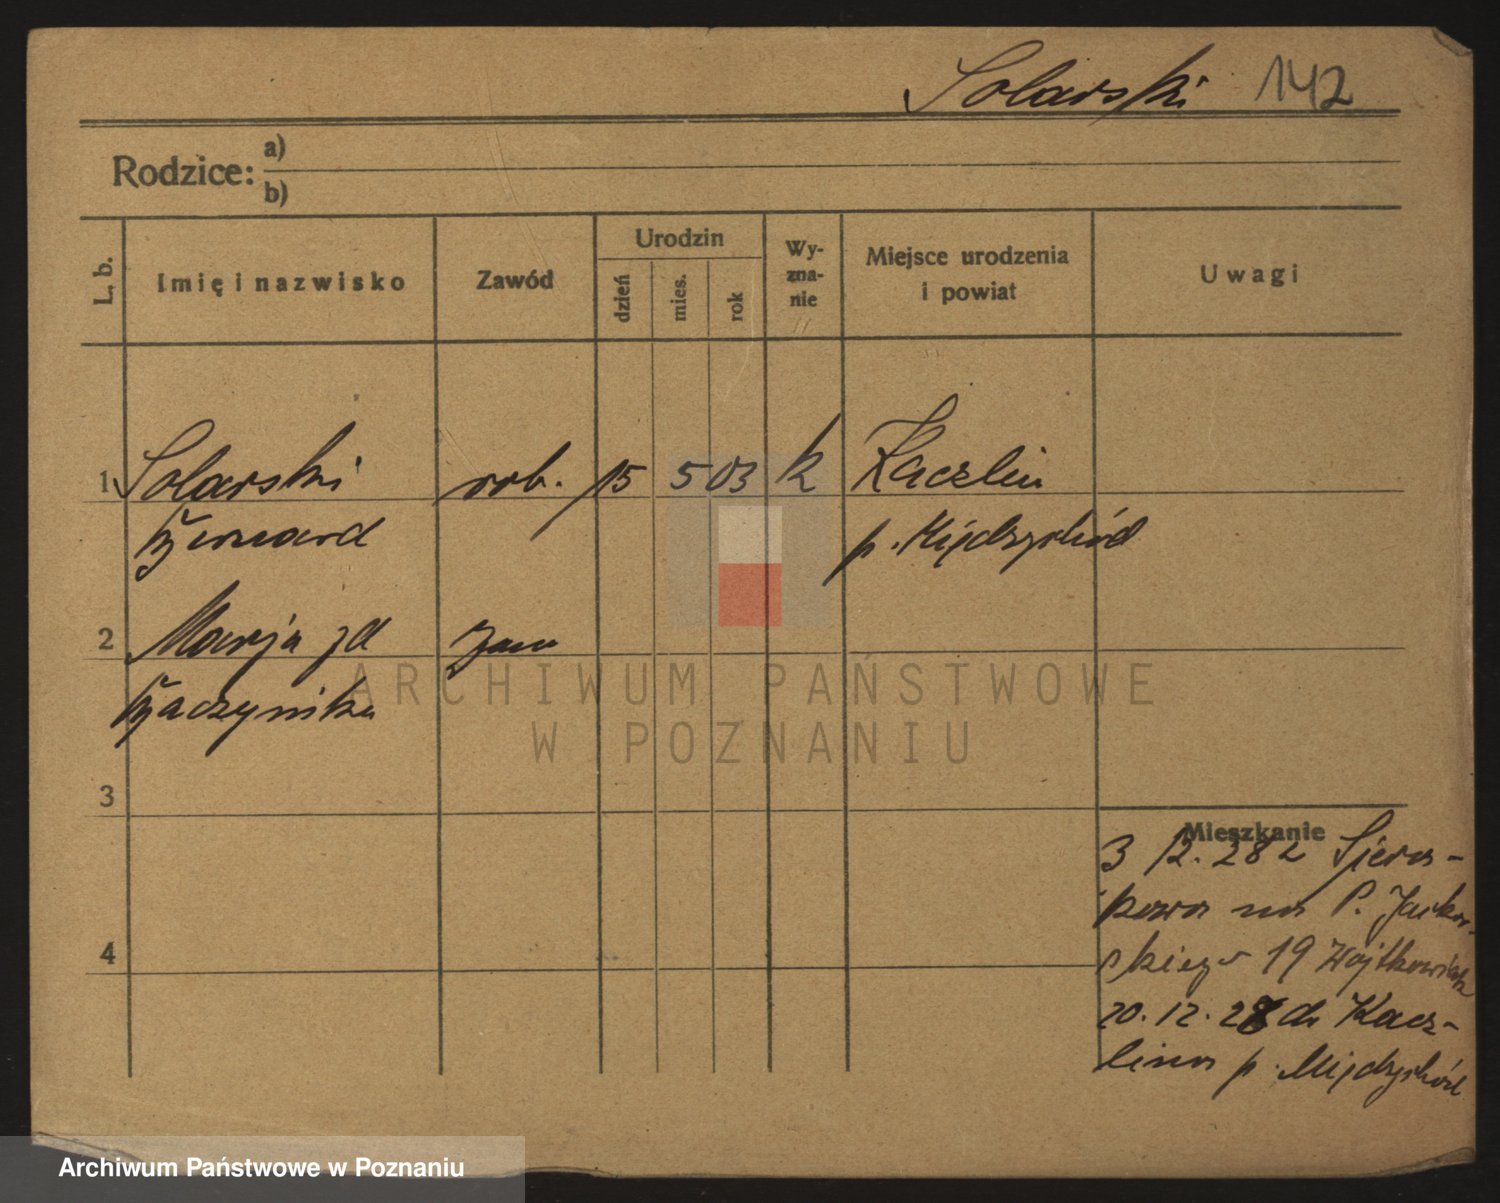 Solarski 142
Rodzice: a)
b)
L. b. Imię i nazwisko Zawód Urodzin dzień mies. rok Wy-zna-nie Miejsce urodzenia i powiat Uwagi
1 Solarski rob. 15 5 03 k Kaczlin
Bernard p. Międzychód
2 Marja zd żona
Baczyńska
3
Mieszkanie
3 12. 28 z Siera-
kowa na P. Jacko-
4 skiego 19 Wojtkowiak
20. 12. 28 do Kacz-
lina p. Międzychód
ARCHIWUM PAŃSTWOWE
W POZNANIU
Archiwum Państwowe w Poznaniu